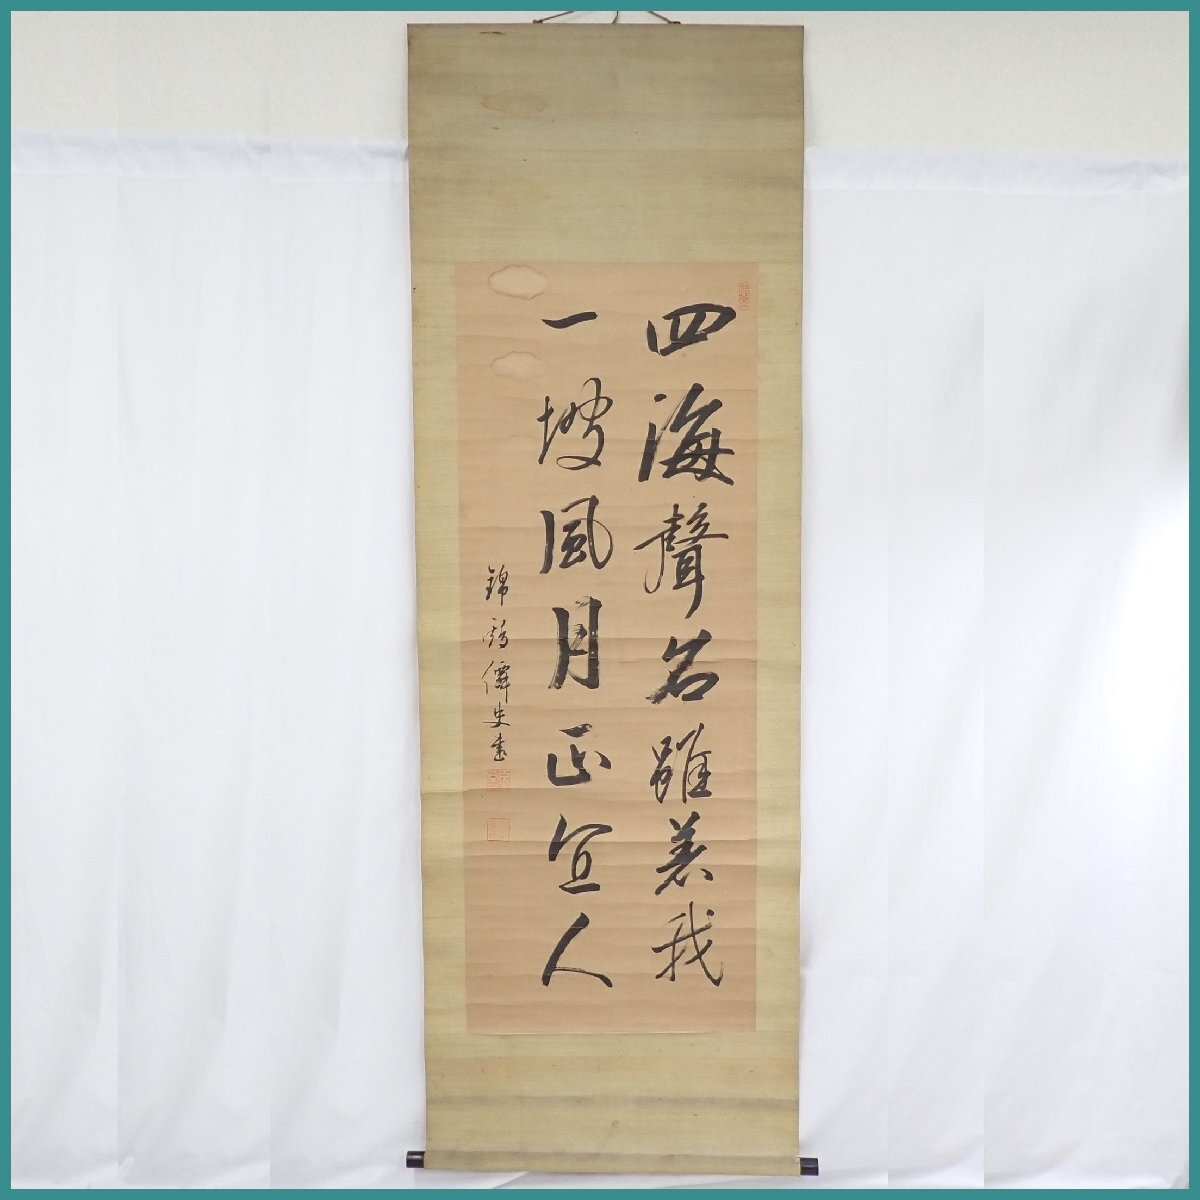 四海聲名雖羨我
一坡風月正宜人
錦
僊史書